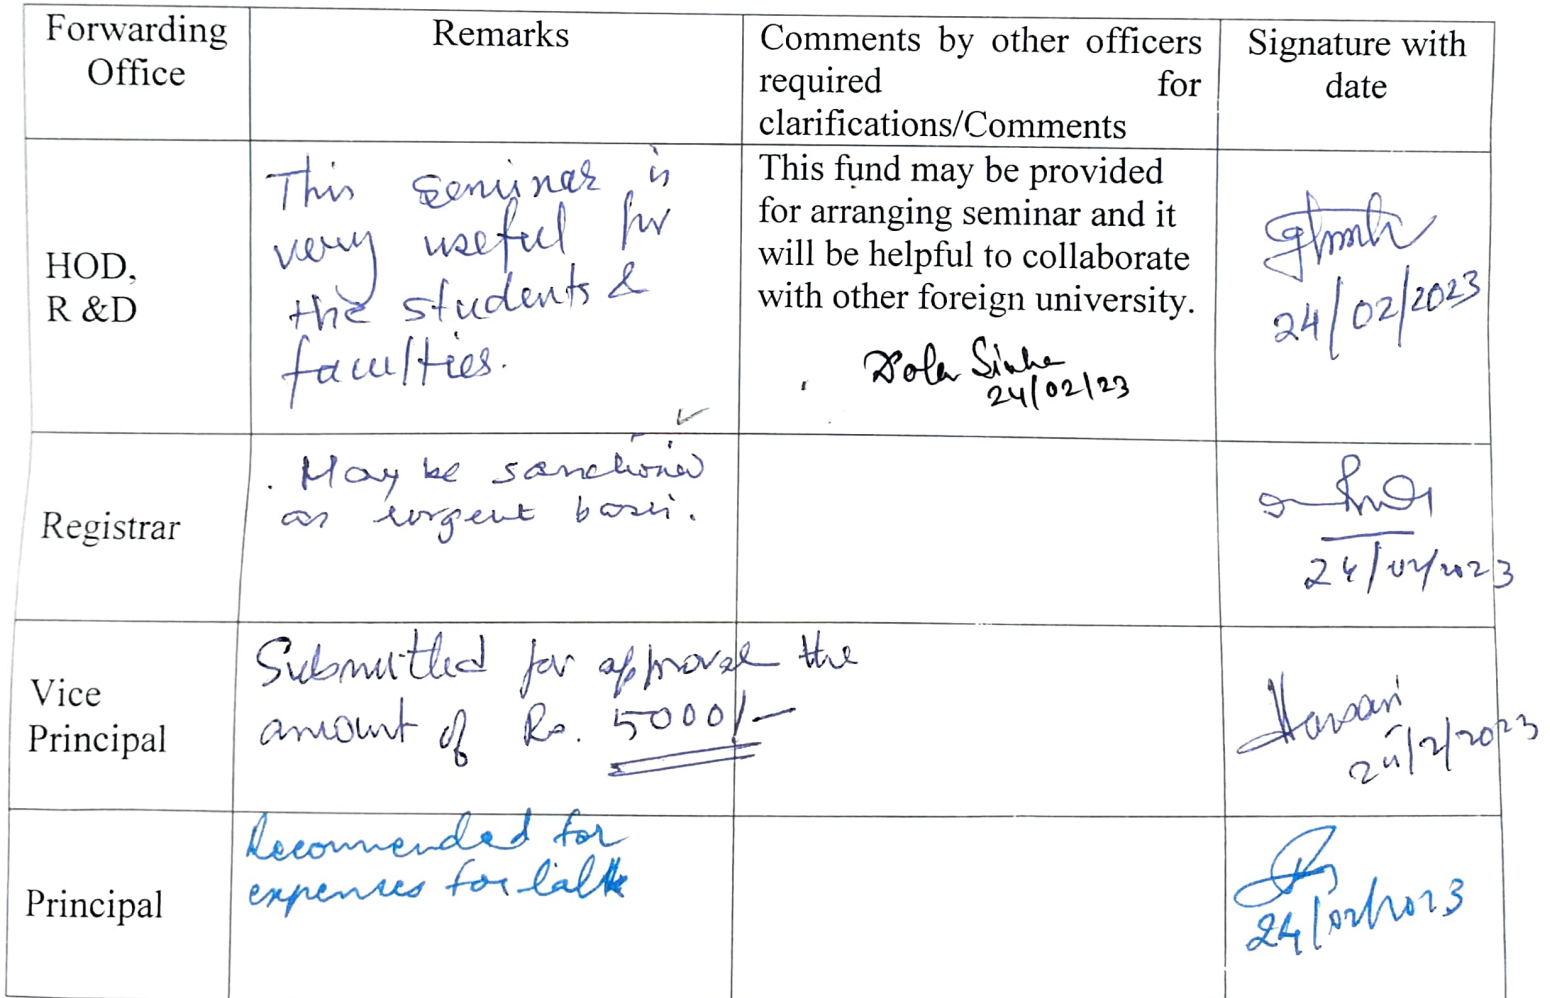 Forwarding Office
Remarks
Comments by other officers
required for
clarifications/Comments
Signature with
date
HOD,
R &D
This seminar is
very useful for
the students &
faculties.
This fund may be provided
for arranging seminar and it
will be helpful to collaborate
with other foreign university.
Dola Sinha
24/02/23
24/02/2023
Registrar
May be sanctioned
as urgent basis.
24/02/2023
Vice
Principal
Submitted for approval the
amount of Rs. 5000/-
24/2/2023
Principal
Recommended for
expenses for talk
24/02/2023